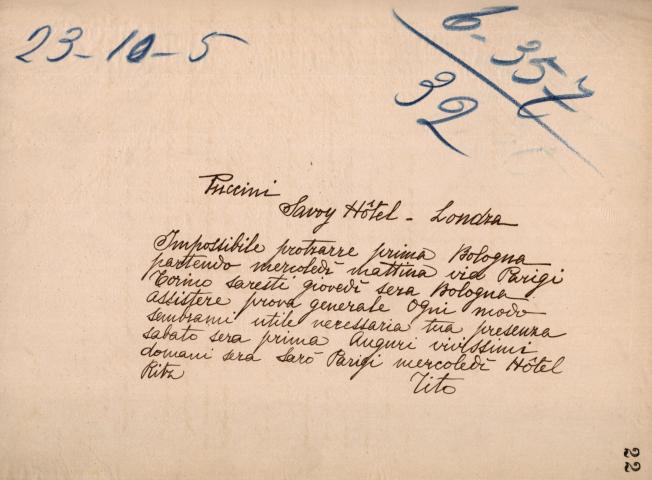 23-10-5
6-357
32
Puccini
Savoy Hôtel - Londra
Impossibile protrarre prima Bologna
partendo mercoledì mattina via Parigi
Torino saresti giovedì sera Bologna
assistere prova generale Ogni modo
sembrami utile necessaria tua presenza
sabato sera prima Auguri vivissimi
domani sera Sarò Parigi mercoledì Hôtel
Ritz
Tito
22